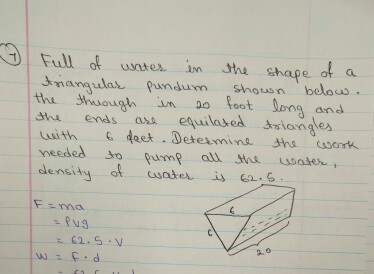 7
Full of water in the shape of a
triangular pundum shown below.
the through in 20 foot long and
the ends are equilated triangles
with 6 feet. Determine the work
needed to pump all the water,
density of water is 62.5.
F = ma
= ρvg
= 62.5 . V
W = F . d
6
6
20